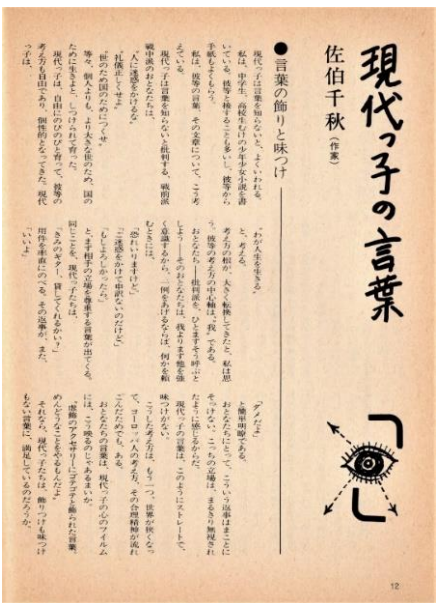 現代っ子の言葉
佐伯千秋（作家）
●言葉の飾りと味つけ
現代っ子は言葉を知らないと、よくいわれる。
私は、中学生、高校生むけの少年少女小説を書
いている。彼等と接することも多いし、彼等から
手紙もよくもらう。
私は、彼等の言葉、その文章について、こう考
えている。
現代っ子は言葉を知らないと批判する、戦前派
戦中派のおとなたちは、
“人に迷惑をかけるな”
“礼儀正しくせよ”
“世のため国のためにつくせ”
等々、個人よりも、より大きな世のため、国の
ために生きよと、しつけられて育った。
現代っ子は、自由にのびのびと育って、彼等の
考え方も自由であり、個性的となってきた。現代
っ子は、
“わが人生を生きる”
と、考える。
考え方の根が、大きく転換してきたと、私は思
う。彼等の考え方の中心軸は“我”である。
おとなたち――批判派を、ひとまずそう呼ぶと
しよう――そのおとなたちは、我よりまず他を強
く意識するから、一例をあげるならば、何かを頼
むときには、
「恐れいりますけど」
「ご迷惑をかけて申訳ないのだけど」
「もしよろしかったら」
と、まず相手の立場を尊重する言葉が出てくる。
同じことを、現代っ子たちは、
「きみのギター、貸してくれるかい？」
用件を率直にのべる。その返事が、また、
「いいよ」
「ダメだよ」
と簡単明瞭である。
おとなたちにとって、こういう返事はまことに
そっけない。こっちの立場は、まるきり無視され
たように感じるからだ。
現代っ子の言葉は、このようにストレートで、
味つけがない。
こうした考え方は、もう一つ、世界が狭くなっ
て、ヨーロッパ人の考え方、その合理精神が流れ
こんだためでも、ある。
おとなたちの言葉は、現代っ子の心のフイルム
には、こう映るのじゃあるまいか。
“虚飾のアクセサリーにゴテゴテと飾られた言葉。
めんどうなことをやるもんだよ”
それなら、現代っ子たちは、飾りつけも味つけ
もない言葉に、満足しているのだろうか。
12